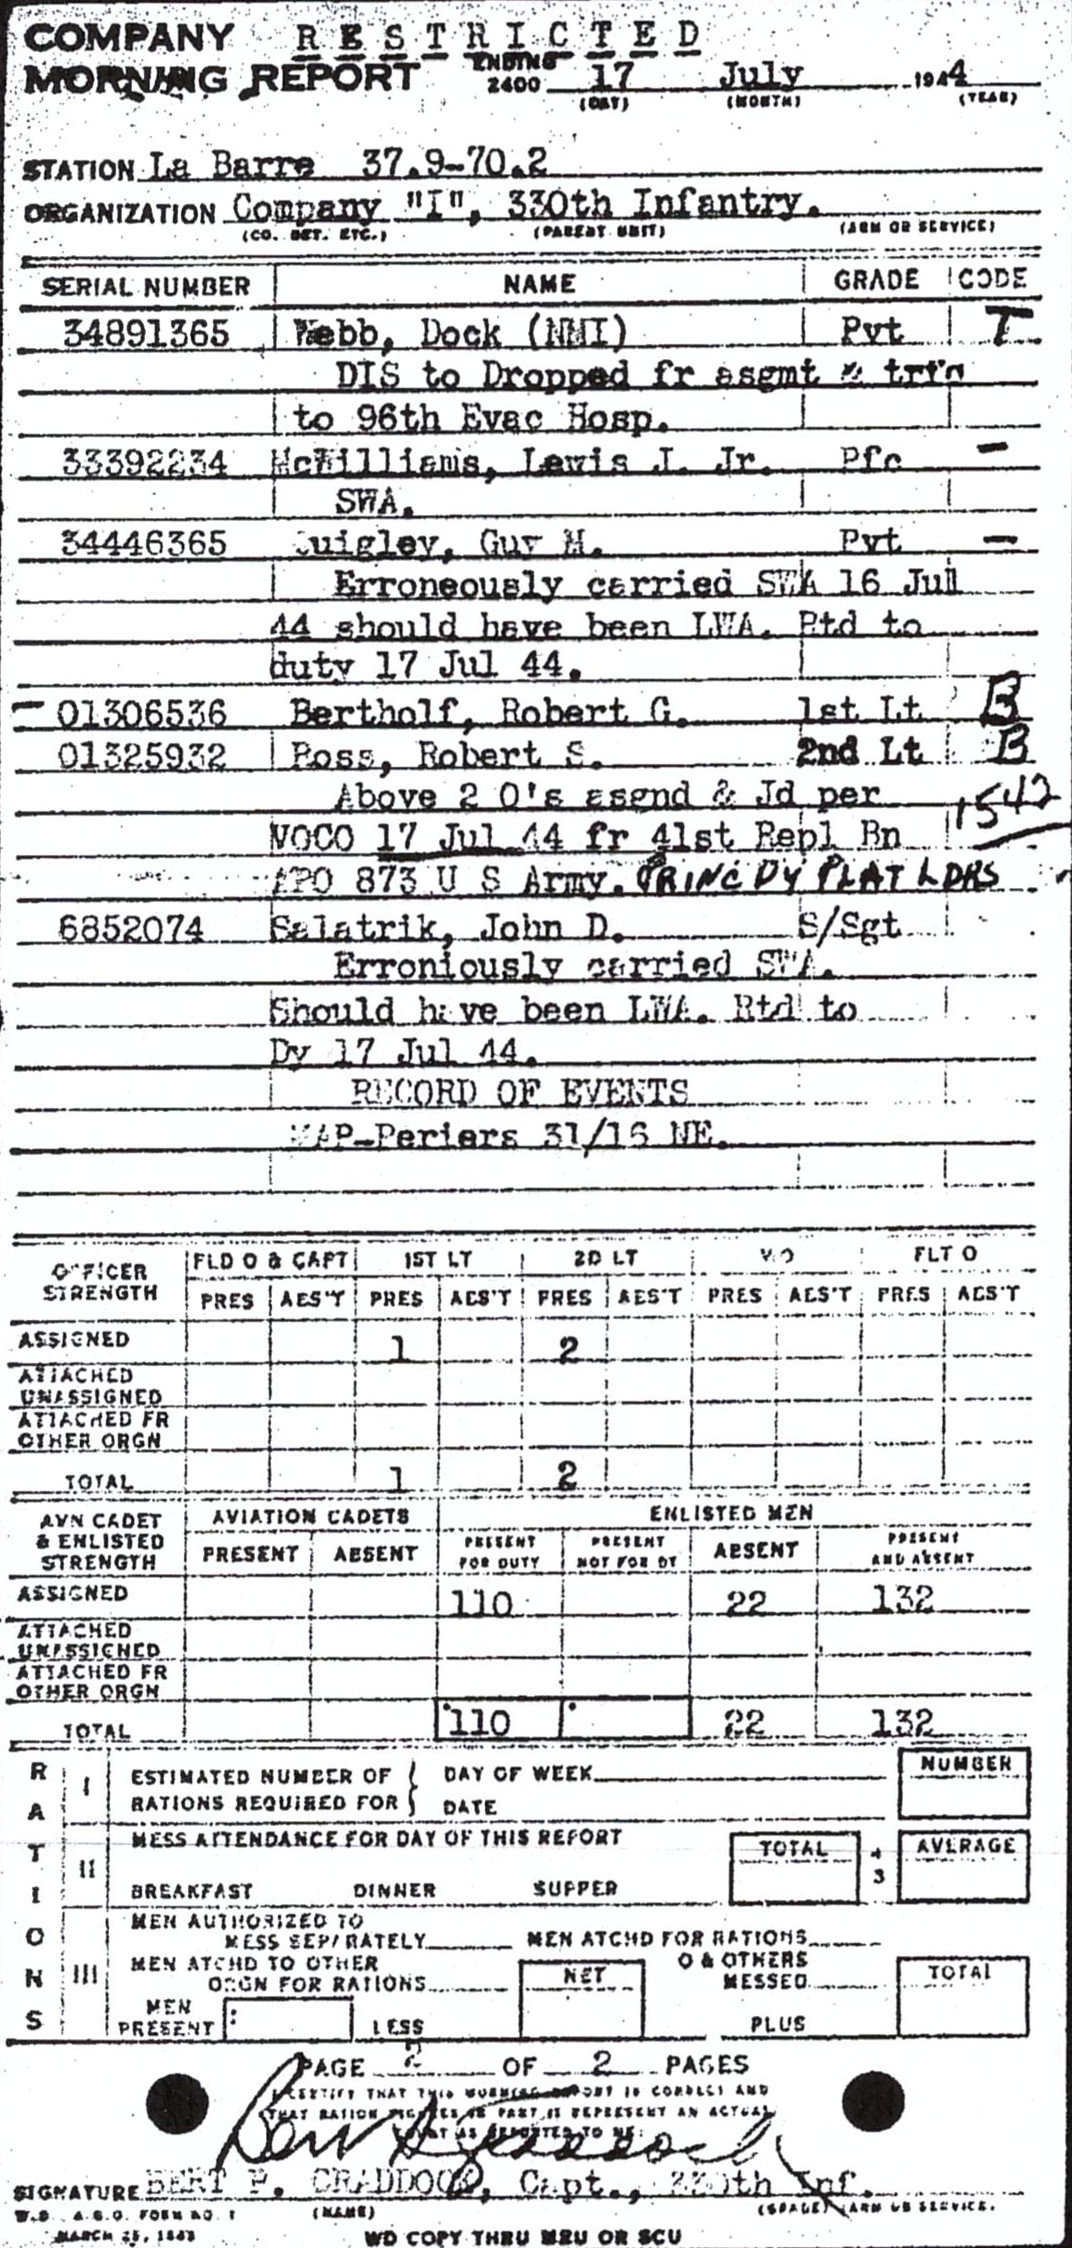 COMPANY RESTRICTED
MORNING REPORT ENDING 2400 17 July 1944
(DAY) (MONTH) (YEAR)
STATION La Barre 37.9-70.2
ORGANIZATION Company "I", 330th Infantry.
(CO. DET. ETC.) (PARENT UNIT) (ARM OR SERVICE)
SERIAL NUMBER NAME GRADE CODE
34891365 Webb, Dock (NMI) Pvt T
DIS to Dropped fr asgmt & trfd
to 96th Evac Hosp.
33392234 McWilliams, Lewis J. Jr. Pfc -
SWA.
34446365 Quigley, Guy M. Pvt -
Erroneously carried SWA 16 Jul
44 should have been LWA. Rtd to
duty 17 Jul 44.
- 01306536 Bertholf, Robert G. 1st Lt B
01325932 Ross, Robert S. 2nd Lt B
Above 2 O's asgnd & Jd per 1542
VOCO 17 Jul 44 fr 41st Repl Bn
APO 873 U S Army. PRINC DY PLAT LDRS
6852074 Salatrik, John D. S/Sgt
Erroniously carried SWA.
Should have been LWA. Rtd to
Dy 17 Jul 44.
RECORD OF EVENTS
MAP-Periers 31/16 NE.
OFFICER STRENGTH FLD O & CAPT 1ST LT 2D LT W O FLT O
PRES ABS'T PRES ABS'T PRES ABS'T PRES ABS'T PRES ABS'T
ASSIGNED 1 2
ATTACHED UNASSIGNED
ATTACHED FR OTHER ORGN
TOTAL 1 2
AVN CADET & ENLISTED STRENGTH AVIATION CADETS ENLISTED MEN
PRESENT ABSENT PRESENT FOR DUTY PRESENT NOT FOR DY ABSENT PRESENT AND ABSENT
ASSIGNED 110 22 132
ATTACHED UNASSIGNED
ATTACHED FR OTHER ORGN
TOTAL 110 22 132
RATIONS
I ESTIMATED NUMBER OF RATIONS REQUIRED FOR { DAY OF WEEK NUMBER
DATE
II MESS ATTENDANCE FOR DAY OF THIS REPORT TOTAL ÷ 3 AVERAGE
BREAKFAST DINNER SUPPER
III MEN AUTHORIZED TO MESS SEPARATELY MEN ATCHD FOR RATIONS
MEN ATCHD TO OTHER ORGN FOR RATIONS NET O & OTHERS MESSED TOTAL
MEN PRESENT LESS PLUS
PAGE 2 OF 2 PAGES
I CERTIFY THAT THIS MORNING REPORT IS CORRECT AND
THAT RATION FIGURES IN PART II REPRESENT AN ACTUAL
COUNT AS REPORTED TO ME:
SIGNATURE BERT P. CRADDOCK, Capt., 330th Inf.
(NAME) (GRADE) (ARM OR SERVICE.
W.D. A.G.O. FORM NO. 1
MARCH 25, 1943 WD COPY THRU MRU OR SCU